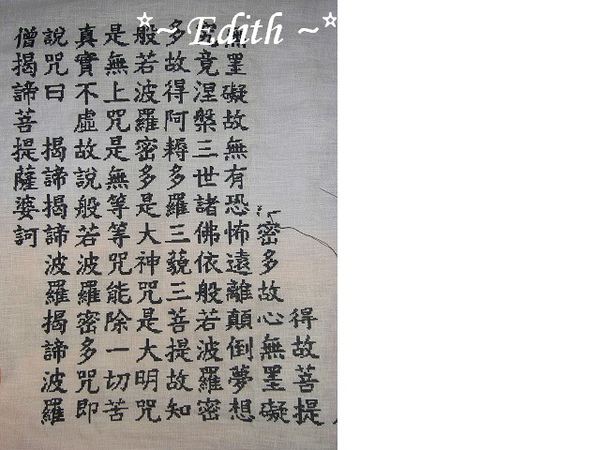 *~ Edith ~*
得故菩提
密多故心無罣礙
無罣礙故無有恐怖遠離顛倒夢想
究竟涅槃三世諸佛依般若波羅密
多故得阿耨多羅三藐三菩提故知
般若波羅密多是大神咒是大明咒
是無上咒是無等等咒能除一切苦
真實不虛故說般若波羅密多咒即
說咒曰 揭諦揭諦波羅揭諦波羅
僧揭諦菩提薩婆訶